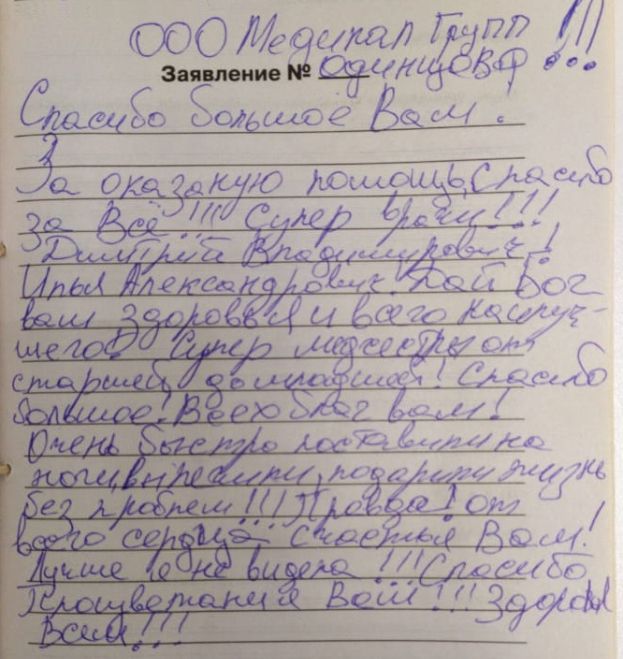 ООО Медикал Групп !!!
Заявление № Одинцово
Спасибо большое Вам.
За оказаную помощь, Спасибо
за Всё!!! Супер врачи!!!!
Дмитрий Владимирович!
Илья Александрович. Дай Бог
вам здоровья и всего наилуч-
шего! Супер медсестры от
старшей до младшей! Спасибо
большое! Всех благ вам!
Очень быстро поставили на
ноги, вылечили, подарили жизнь
без проблем!!! Правда! от
всего сердца. Счастья Вам!
Лучше не видела!!! Спасибо
Процветания Вам!!! Здоровья
Всем!!!